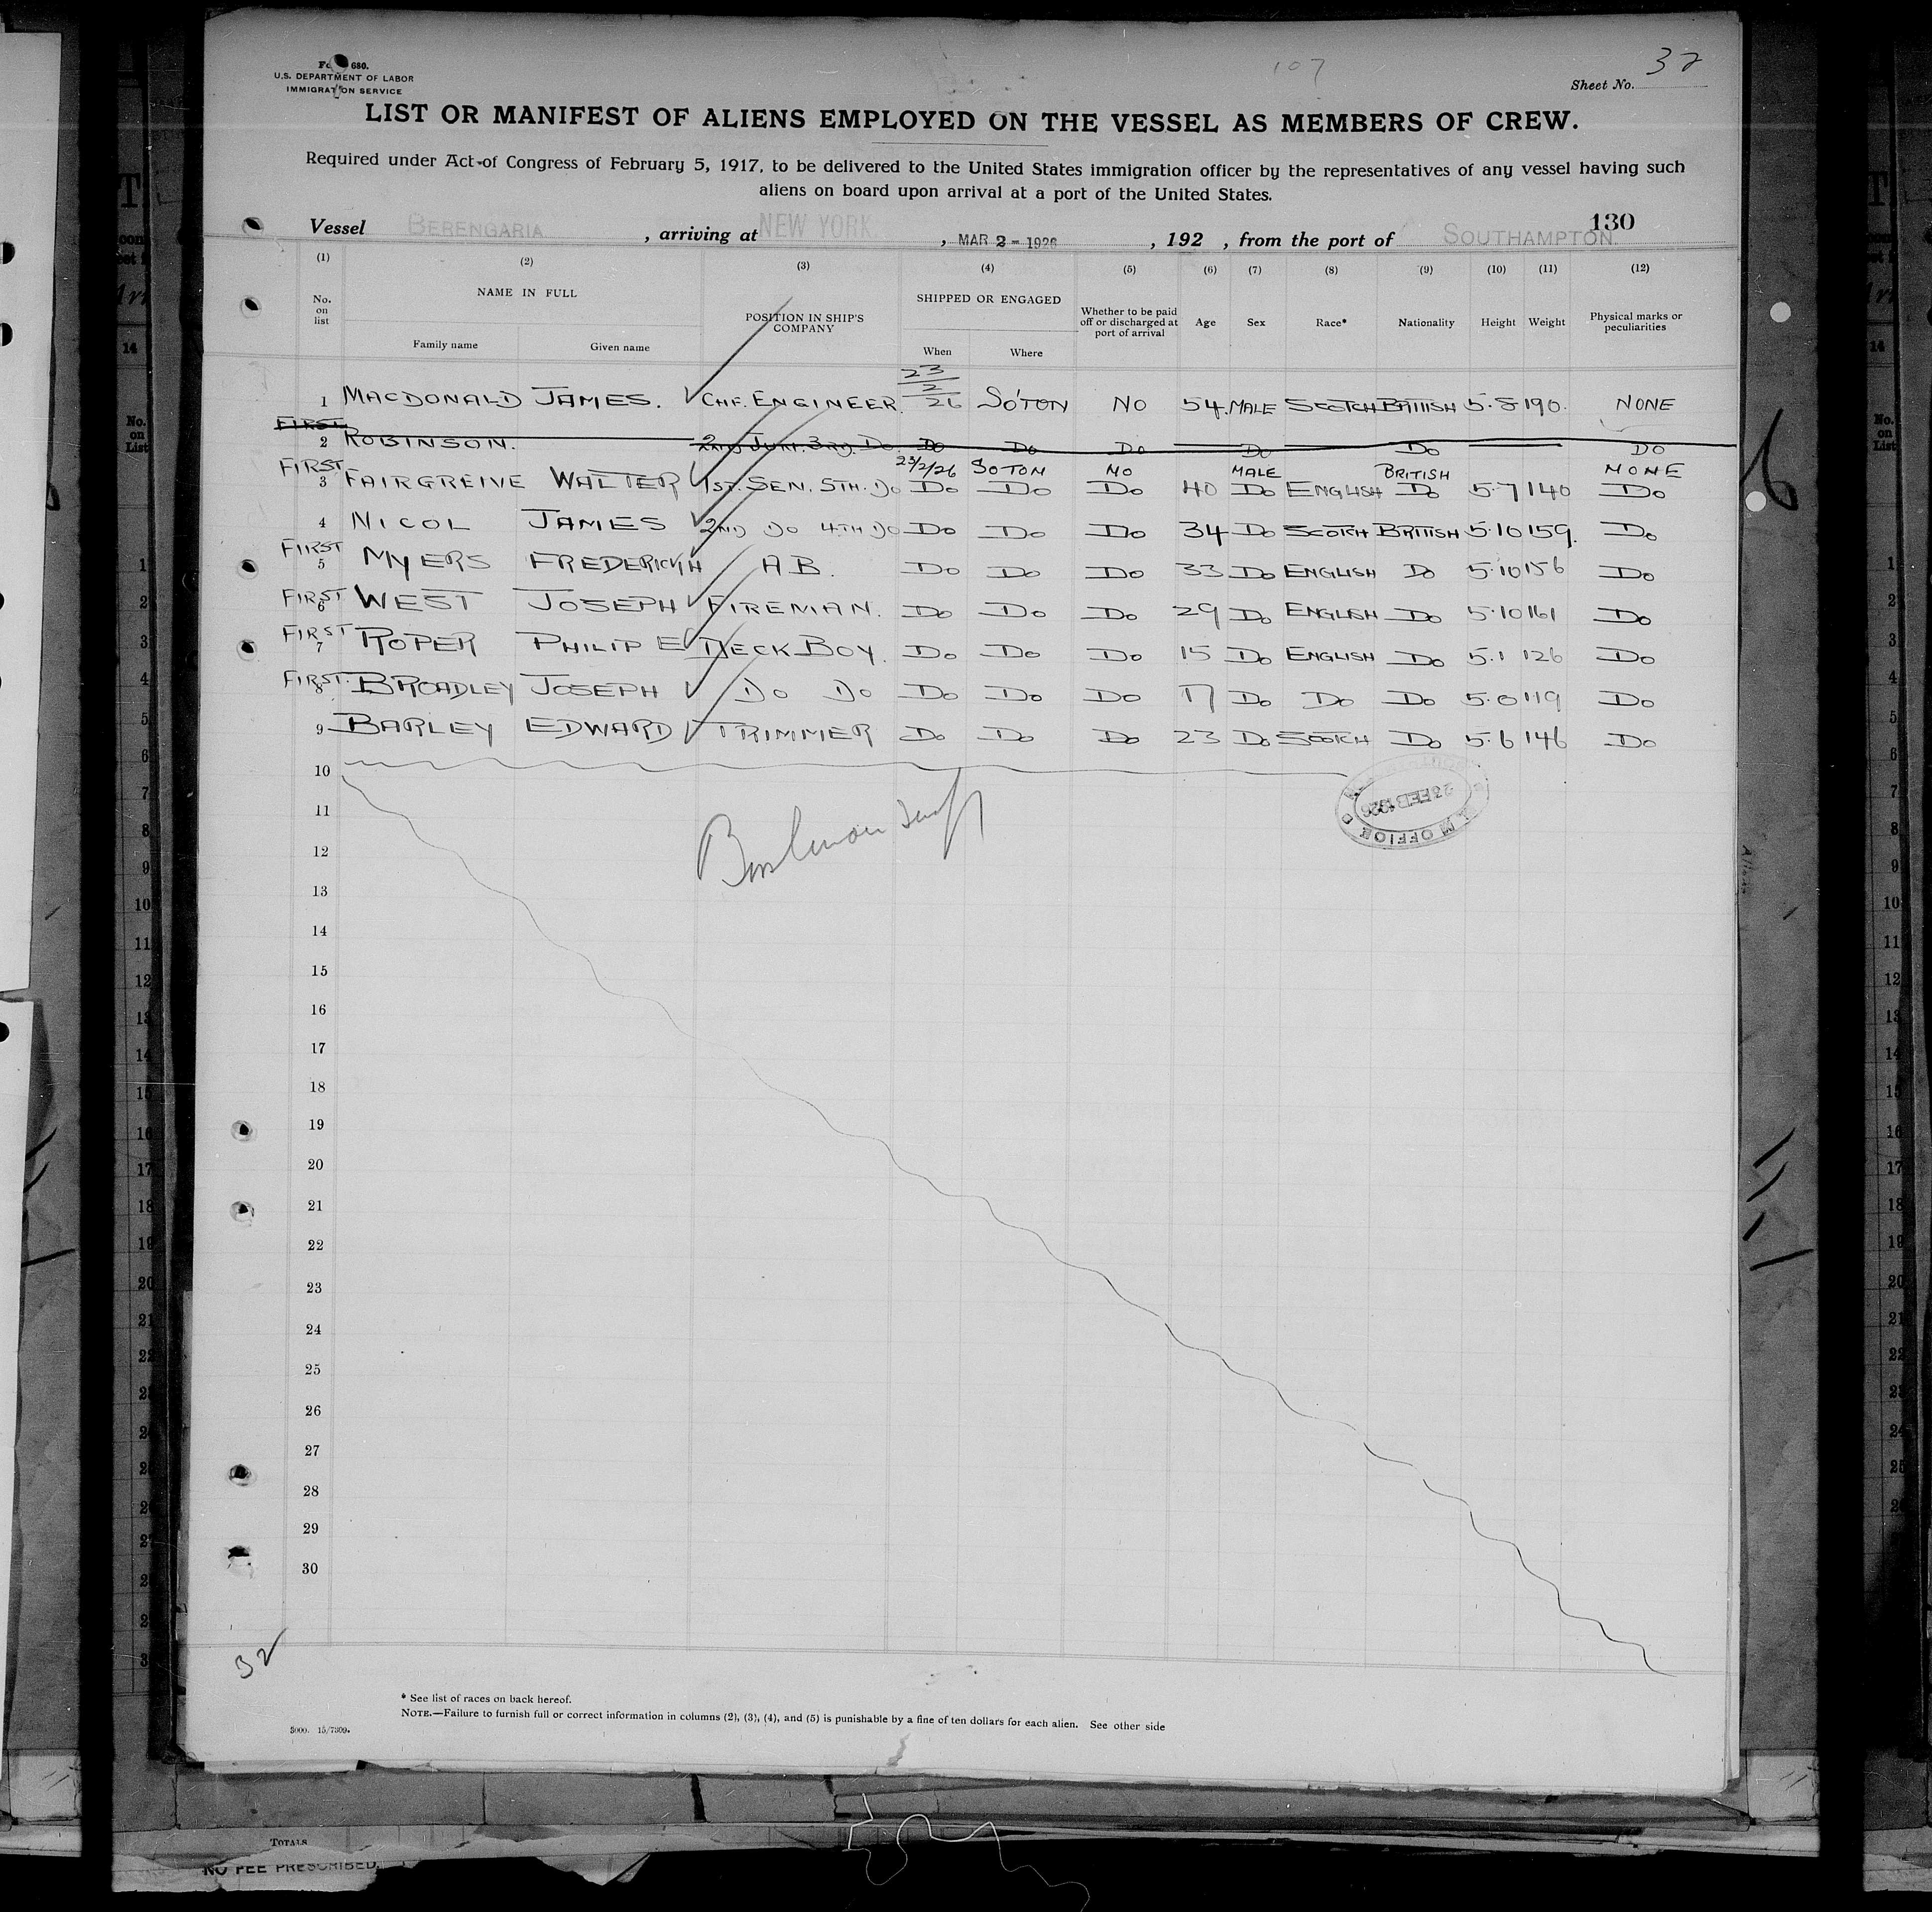 Fo 680.
U.S. DEPARTMENT OF LABOR
IMMIGRATION SERVICE
107
Sheet No. 32
LIST OR MANIFEST OF ALIENS EMPLOYED ON THE VESSEL AS MEMBERS OF CREW.
Required under Act of Congress of February 5, 1917, to be delivered to the United States immigration officer by the representatives of any vessel having such
aliens on board upon arrival at a port of the United States.
130
Vessel BERENGARIA , arriving at NEW YORK , MAR 2 - 1926 , 192 , from the port of SOUTHAMPTON.
(1) (2) (3) (4) (5) (6) (7) (8) (9) (10) (11) (12)
No. on list NAME IN FULL Family name Given name POSITION IN SHIP'S COMPANY SHIPPED OR ENGAGED When Where Whether to be paid off or discharged at port of arrival Age Sex Race* Nationality Height Weight Physical marks or peculiarities
1 MACDONALD JAMES. CHF. ENGINEER. 23/2/26 SO'TON NO 54. MALE SCOTCH BRITISH 5.8 190. NONE
FIRST
2 ROBINSON. 2ND JUN. 3RD. DO. DO DO DO DO DO DO
FIRST 23/2/26 SOTON NO MALE BRITISH NONE
3 FAIRGREIVE WALTER 1ST. SEN. 5TH. DO DO DO DO 40 DO ENGLISH DO 5.7 140 DO
4 NICOL JAMES 2ND DO 4TH DO DO DO DO 34 DO SCOTCH BRITISH 5.10 159. DO
FIRST
5 MYERS FREDERICK H A B. DO DO DO 33 DO ENGLISH DO 5.10 156 DO
FIRST
6 WEST JOSEPH FIREMAN. DO DO DO 29 DO ENGLISH DO 5.10 161 DO
FIRST
7 ROPER PHILIP E DECK BOY. DO DO DO 15 DO ENGLISH DO 5.1 126 DO
FIRST.
8 BROADLEY JOSEPH DO DO DO DO DO 17 DO DO DO 5.0 119 DO
9 BARLEY EDWARD TRIMMER DO DO DO 23 DO SCOTCH DO 5.6 146 DO
10
23 FEB 1926
OFFICE
11
12
13
14
15
16
17
18
19
20
21
22
23
24
25
26
27
28
29
30
32
* See list of races on back hereof.
NOTE.—Failure to furnish full or correct information in columns (2), (3), (4), and (5) is punishable by a fine of ten dollars for each alien. See other side
5000. 15/7309.
TOTALS
NO FEE PRESCRIBED.